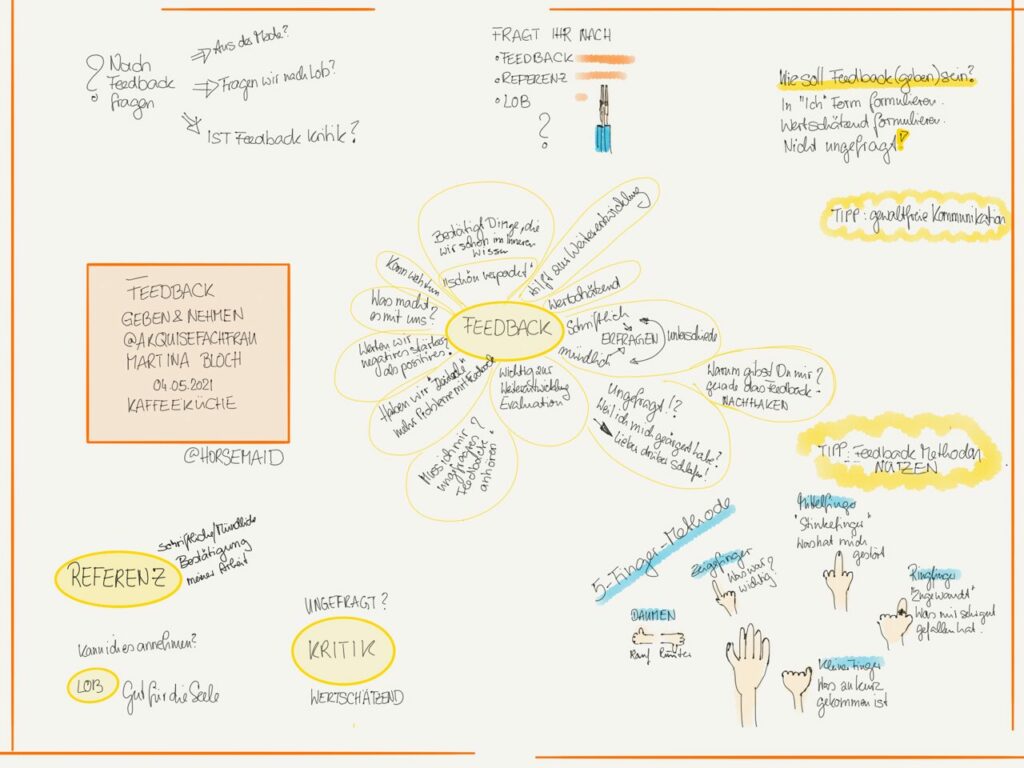 ? Nach
Feedback
fragen
⇒ Aus der Mode?
⇒ Fragen wir nach Lob?
IST Feedback Kritik?
FRAGT IHR NACH
• FEEDBACK
• REFERENZ
• LOB
?
Wie soll Feedback (geben) sein?
In "Ich" Form formulieren.
Wertschätzend formulieren.
Nicht ungefragt!
TIPP: gewaltfreie Kommunikation
FEEDBACK
GEBEN & NEHMEN
@AKQUISEFACHFRAU
MARTINA BLOCH
04.05.2021
KAFFEEKÜCHE
@HORSEMAID
FEEDBACK
Bestätigt Dinge, die
wir schon im Inneren
wissen
hilft zur Weiterentwicklung
Kann weh tun
"schön verpackt"
Wertschätzend
Was macht
es mit uns?
Schriftlich
ERFRAGEN
mündlich
Unterschiede
Werten wir
negatives stärker
als positives?
Haben wir "Deutsche"
mehr Probleme mit Feedback
Wichtig zur
Weiterentwicklung
Evaluation
Muss ich mir
ungefragtes
Feedback
anhören?
Ungefragt!?
Weil ich mich geärgert habe?
Lieber drüber schlafen!
Warum gibst Du mir?
gerade das Feedback -
NACHHAKEN
TIPP: Feedback Methoden
NUTZEN
5-Finger-Methode
DAUMEN
Rauf Runter
Zeigefinger
Was war?
wichtig?
Mittelfinger
"Stinkefinger"
Was hat mich
gestört
Ringfinger
"Zugewandt"
Was mir sehr gut
gefallen hat.
Kleiner Finger
Was zu kurz
gekommen ist
REFERENZ
Schriftliche/Mündliche
Bestätigung
meiner Arbeit
Kann ich es annehmen?
LOB
Gut für die Seele
UNGEFRAGT?
KRITIK
WERTSCHÄTZEND